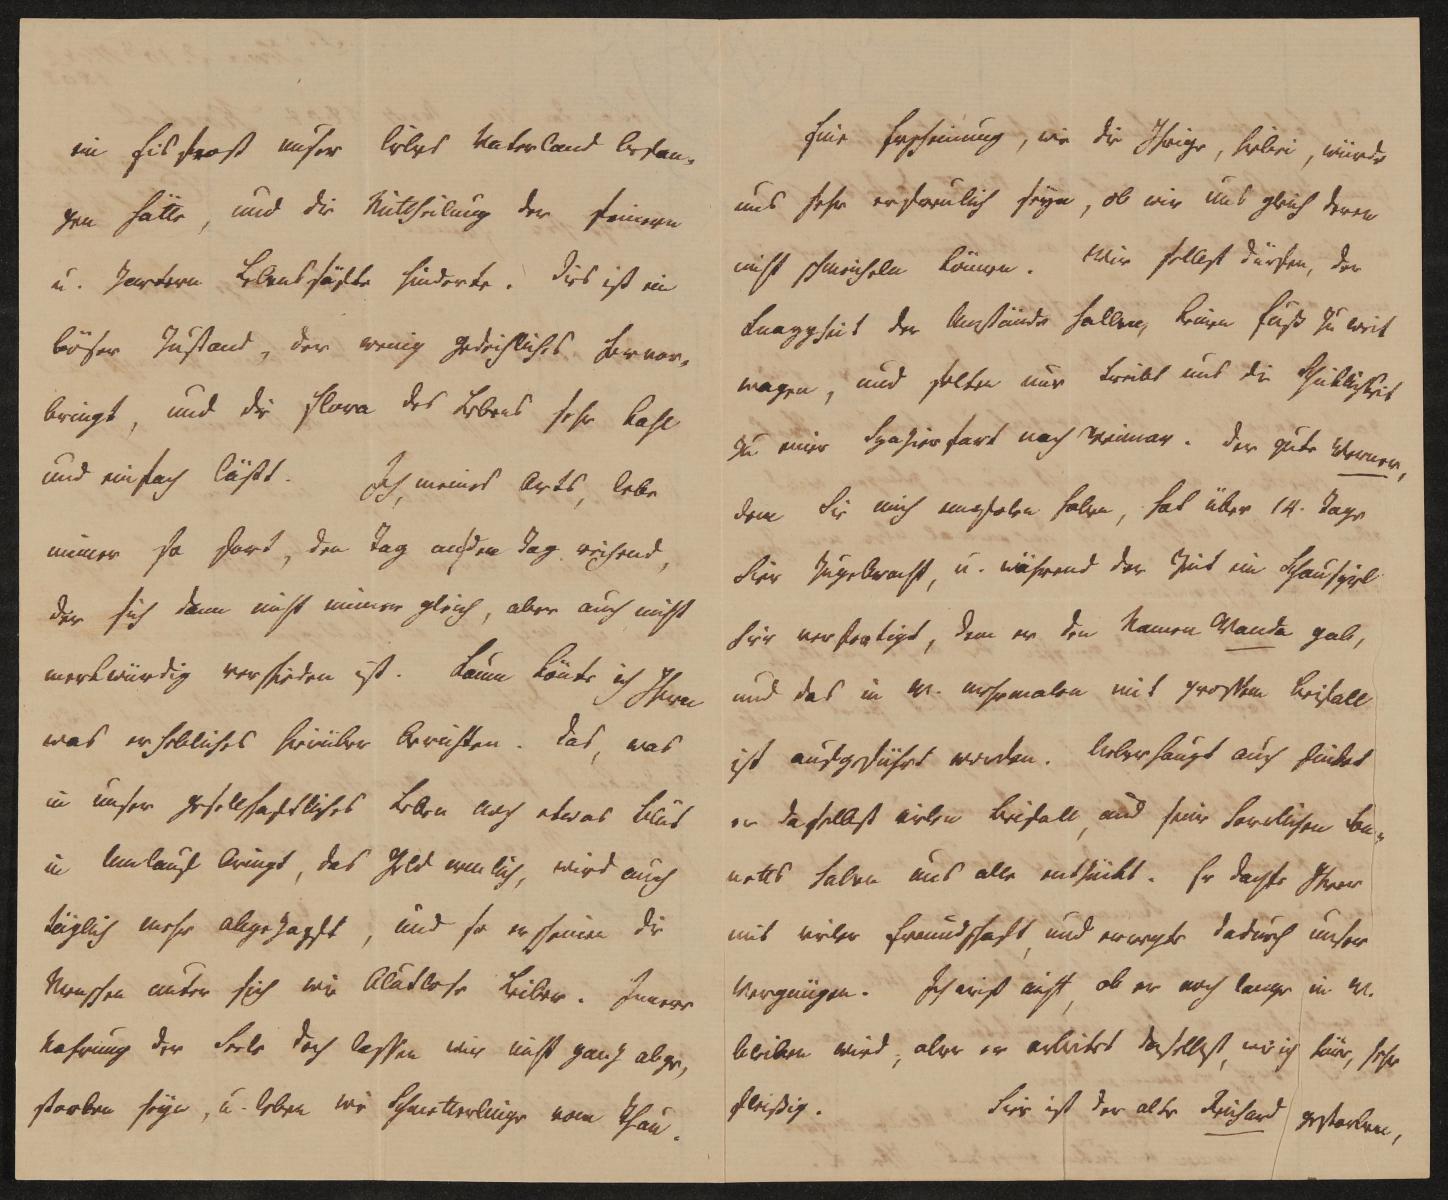 ein Eisfrost unser liebes Vaterland befan-
gen hätte, und die Mittheilung der feinern
u. zartern Lebenssäfte hinderte. Dies ist ein
böser Zustand, der wenig gedeihliches hervor-
bringt, und die Flora des Lebens sehr kahl
und einfach läßt. Ich, meines Orts, lebe
immer so fort, den Tag an den Tag reihend,
der sich denn nicht immer gleich, aber auch nicht
merkwürdig verschieden ist. Kaum könte ich Ihnen
was erhebliches hierüber berichten. Das, was
in unser gesellschaftliches Leben noch etwas Blut
in Umlauf bringt, das Geld nemlich, wird auch
täglich mehr abgezapft, und so erscheinen die
Menschen unter sich wie blutlose Leiber. Innere
Nahrung der Seele doch lassen wir nicht ganz abge-
storben seyn, u. leben wie Schmetterlinge vom Thau.
Eine Erscheinung, wie die Ihrige, hiebei, würde
uns sehr erfreulich seyn, ob wir uns gleich deren
nicht schmeicheln können. Wir selbst dürfen, der
Knappheit der Umstände halber, keinen Fuß zu weit
wagen, und selten nur treibt uns die Schicklichkeit
zu einer Spazierfart nach Weimar. Der gute Werner,
dem Sie mich empfolen haben, hat über 14. Tage
hier zugebracht, u. während der Zeit ein Schauspiel
hier verfertigt, dem er den Namen Wanda gab,
und das in W. mehrmalen mit großem Beifall
ist aufgeführt worden. Ueberhaupt auch findet
er daselbst vielen Beifall, und seine herrlichen Son-
netts haben uns alle entzückt. Er dachte Ihrer
mit vieler Freundschaft, und erregte dadurch unser
Vergnügen. Ich weiß nicht, ob er noch lange in W.
bleiben wird, aber er arbeitet daselbst, wie ich höre, sehr
fleißig. Hier ist der alte Reichard gestorben,